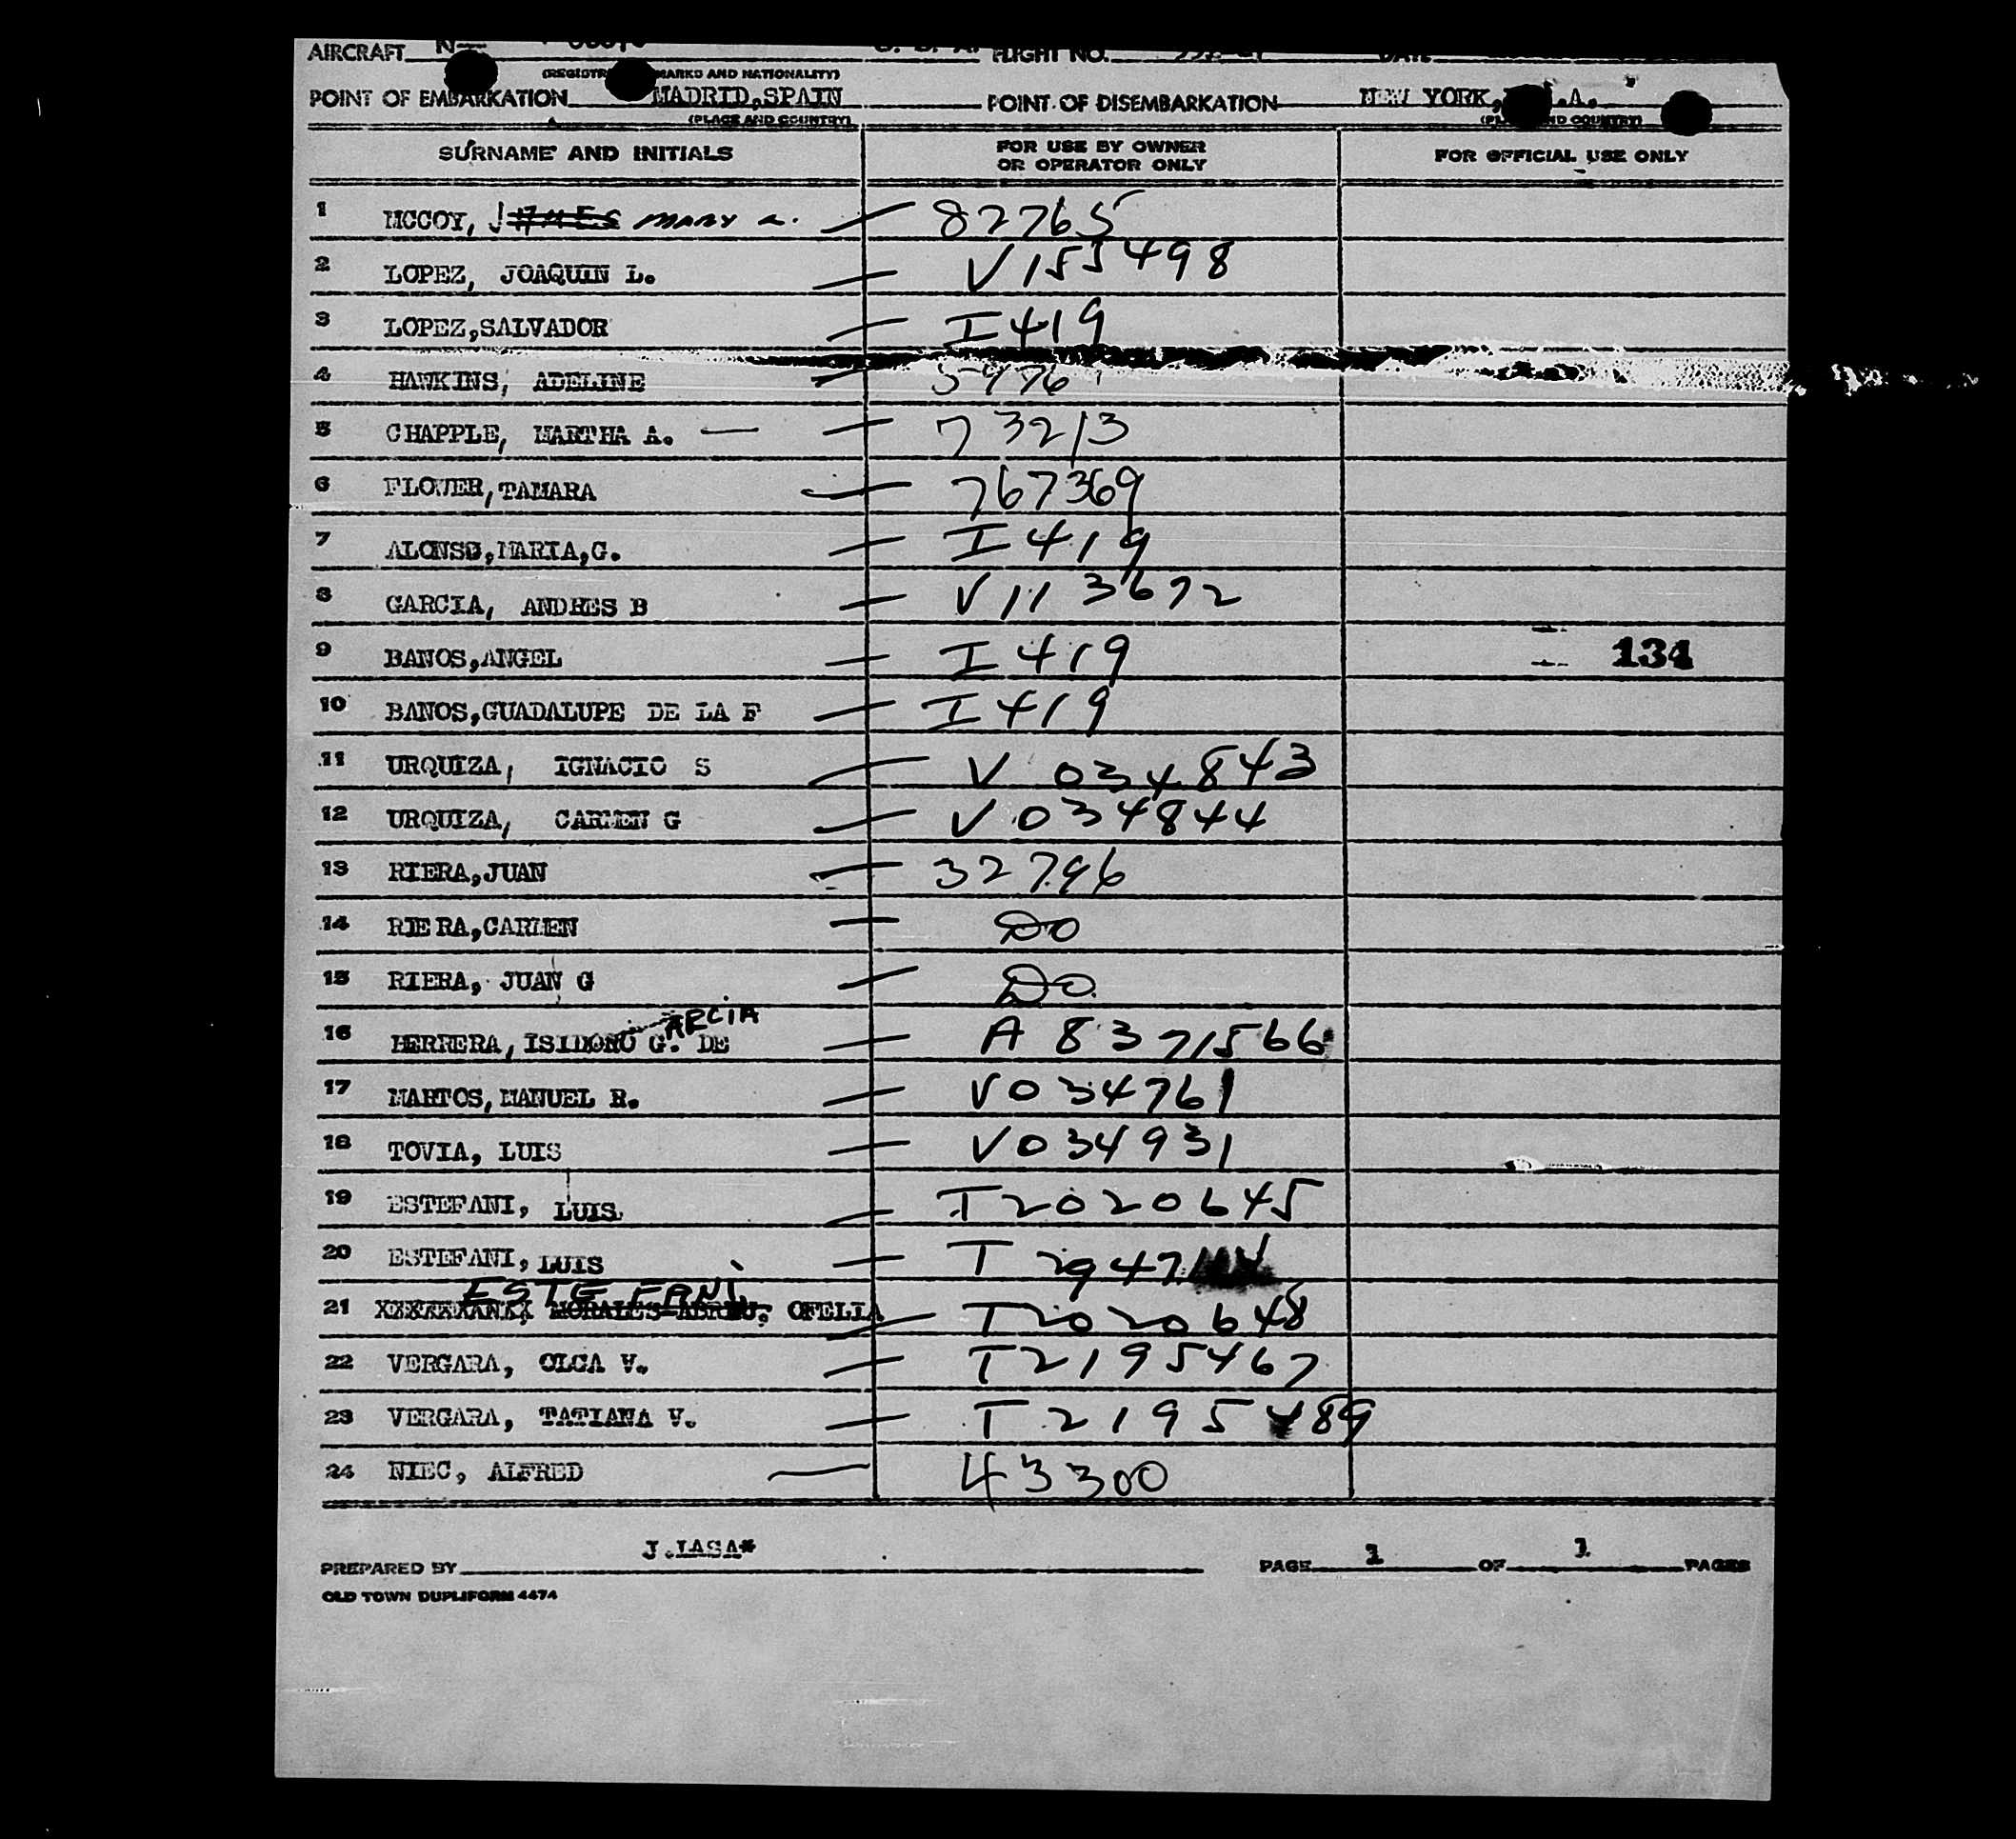 AIRCRAFT FLIGHT NO. DATE
MARKS AND NATIONALITY)
POINT OF EMBARKATION MADRID,SPAIN POINT OF DISEMBARKATION NEW YORK, .A.
(PLACE AND COUNTRY) AND COUNTRY)
SURNAME AND INITIALS FOR USE BY OWNER OR OPERATOR ONLY FOR OFFICIAL USE ONLY
1 MCCOY, JAMES MARY 82765
2 LOPEZ, JOAQUIN L. V155498
3 LOPEZ,SALVADOR I419
4 HAWKINS, ADELINE
5 CHAPPLE, MARTHA A. 73213
6 FLOWER,TAMARA 767369
7 ALONSO,MARIA,G. I419
8 GARCIA, ANDRES B V113672
9 BANOS,ANGEL I419 134
10 BANOS,GUADALUPE DE LA F I419
11 URQUIZA, IGNACIO S V 034843
12 URQUIZA, CARMEN G V034844
13 RIERA,JUAN 32796
14 RIERA,CARMEN DO
15 RIERA, JUAN G DO
ARCIA
16 HERRERA, ISIDORO G. DE A 8371566
17 MARTOS,MANUEL R. V034761
18 TOVIA, LUIS V034931
19 ESTEFANI, LUIS T2020645
20 ESTEFANI, LUIS
ESTEFANI,
21 OFELIA T2020648
22 VERGARA, OLGA V. T2195467
23 VERGARA, TATIANA V. T2195489
24 NIEC, ALFRED 43300
PREPARED BY J.IASA* PAGE 1 OF 1 PAGES
OLD TOWN DUPLIFORM 4474